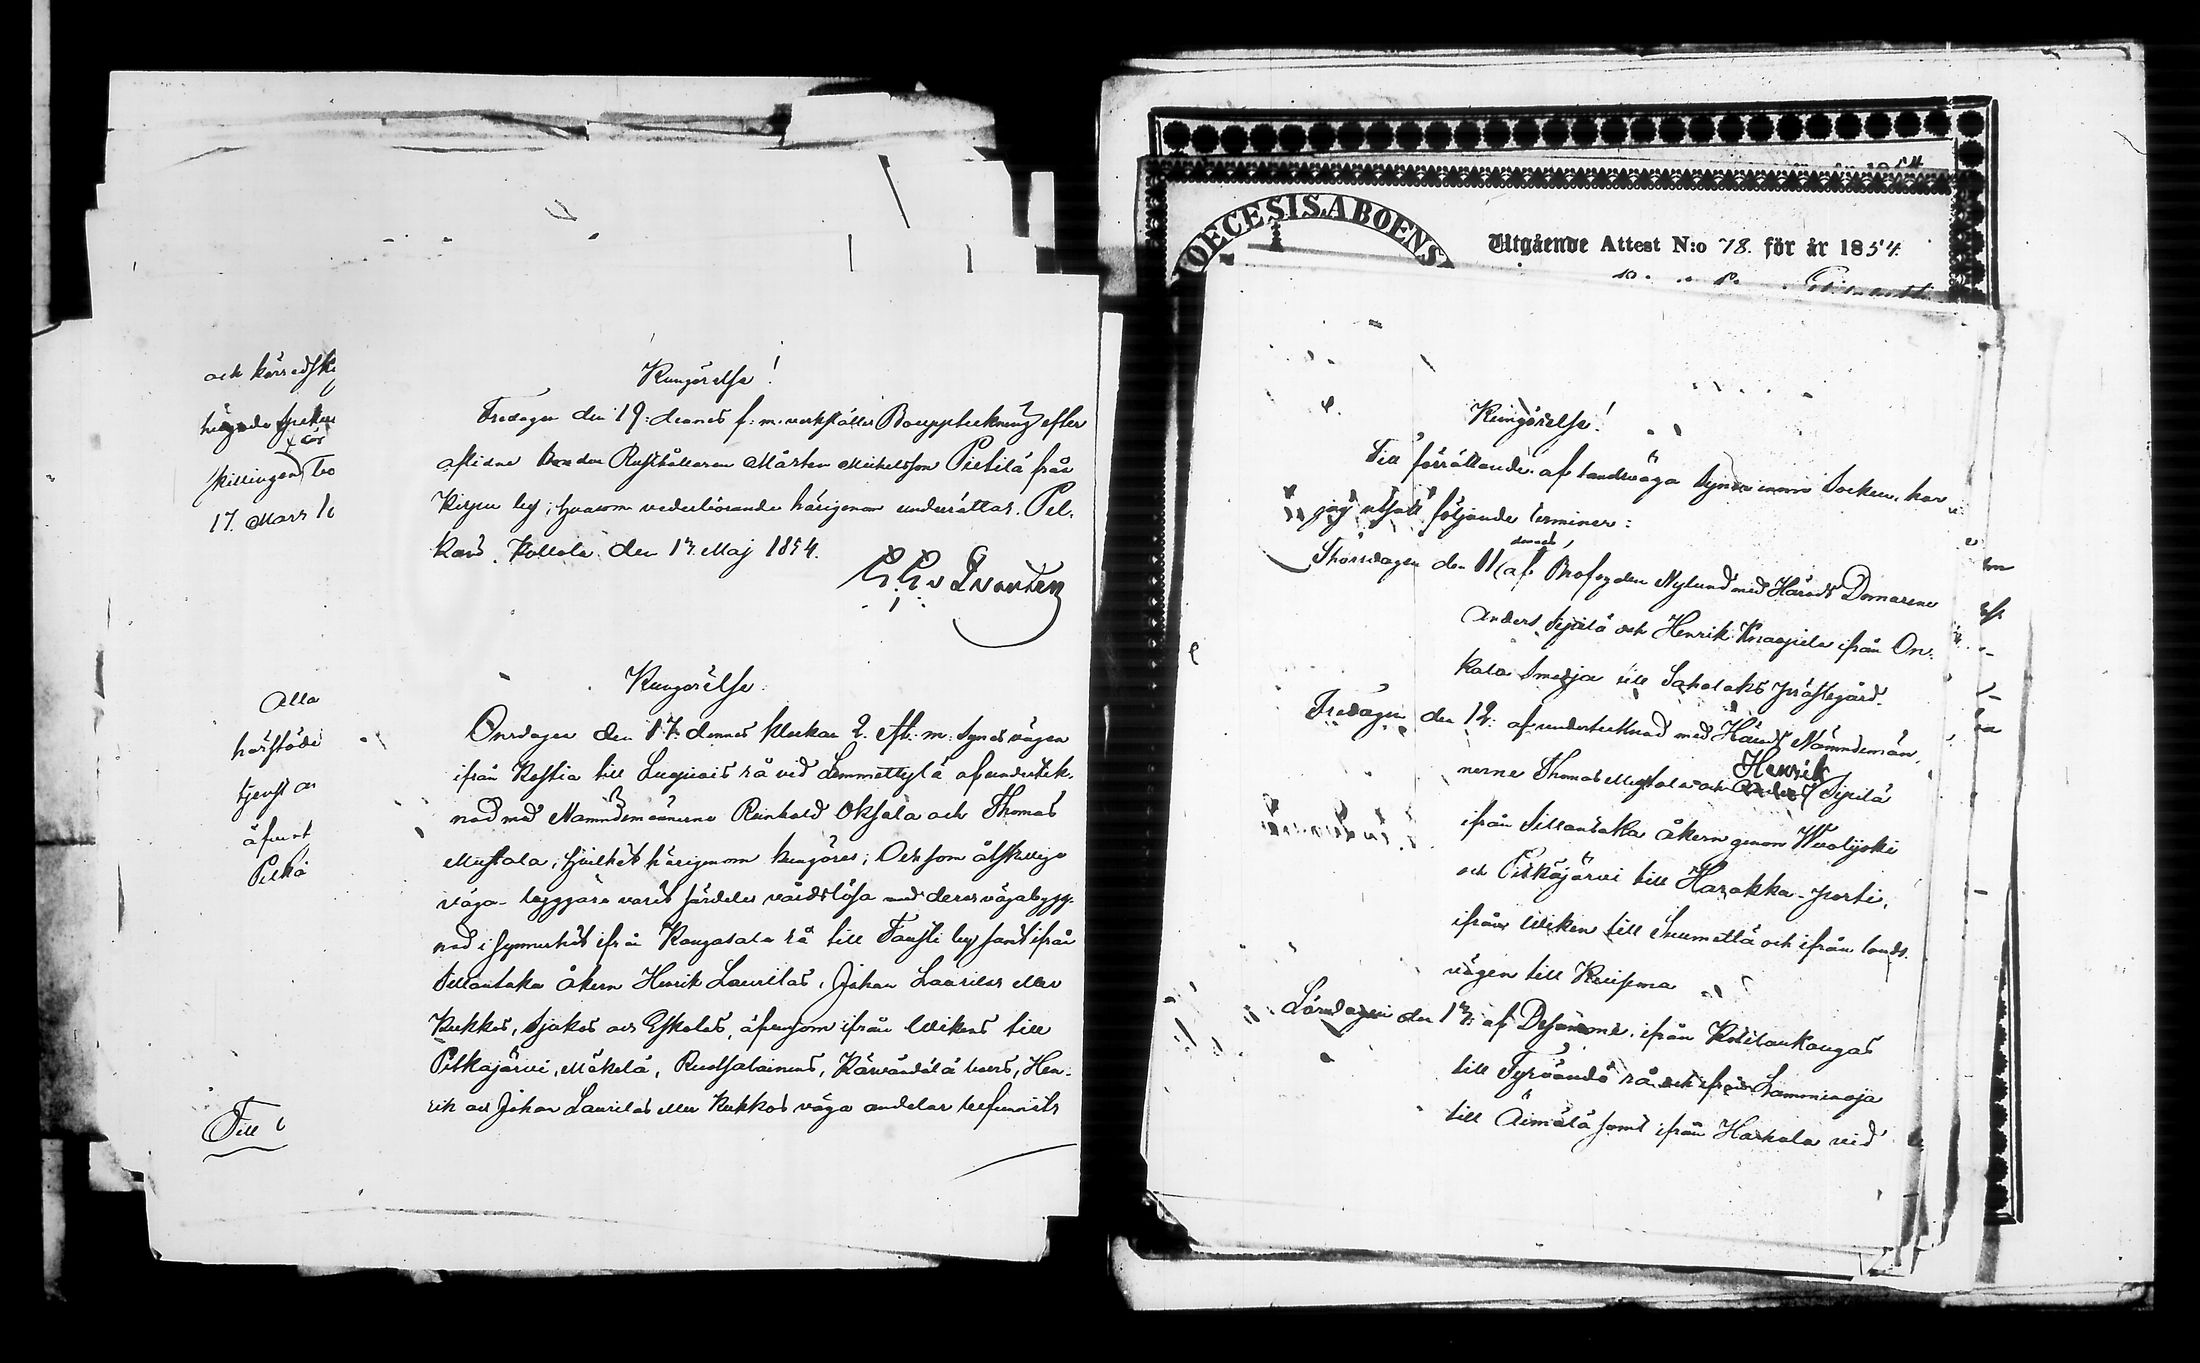 och körredsk
högade
skillingen
17. Mars
Alla
härstädes
tjenst
äfvent
Pelkä
Till
Kungörelse!
Fredagen den 19: dennes f: m: verkställes Bouppteckning efter
aflidne Bonden Rusthållaren Mårten Michelsson Pietilä från
by; hvarom vederbörande härigenom underrättas. Pel-
käne, Kollola den 17. Maj 1854.
Kungörelse:
Onsdagen den 17. dennes klockan 2. eft. m: synes vägen
ifrån Rostia till Luopiois rå vid Lemmettylä af underteck-
nad med Nämndemännerne Reinhold Oksala och Thomas
Mustala, hvilket härigenom kungöres; Och som åtskillige
väga-byggare varit särdeles vårdslösa med deras vägabygg-
nad i synnerhet ifrån Kangasala rå till Tausti by samt ifrån
Sillantaka åkern Henrik Laurilas, Johan Laurilas eller
Kukkos, Sjukos och Eskolas, äfvensom ifrån Wikens till
Pitkäjärvi, Mäkelä, Ruotsalainens, Hen-
rik och Johan Laurilas eller Kukkos väga andelar befunnits
DIOECESIS ABOENS
Utgående Attest N:o 78. för år 1854.
Kungörelse!
Till förrättande af landtväga syner inom Socken, har
jag utsatt följande terminer:
dennes
Thorsdagen den 11 af Brofogden Nylund med Härads Domarene
Anders Sipilä och Henrik Knaapila ifrån On-
kala Smedja till Sahalaks prästegård.
Fredagen den 12: af undertecknad med Härads Nämndemän-
Henrik
nerne Thomas Mustala och Sipilä
ifrån Sillantaka åkern genom Wuolijoki
och Pitkäjärvi till Harakka-porti,
ifrån Wiken till och ifrån lands-
vägen till Kuisema
Lördagen den 13: af Desamme, ifrån Kotilankangas
till Tyrvändö rå och ifrån Lamminoja
till Äimälä samt ifrån Harhala vid